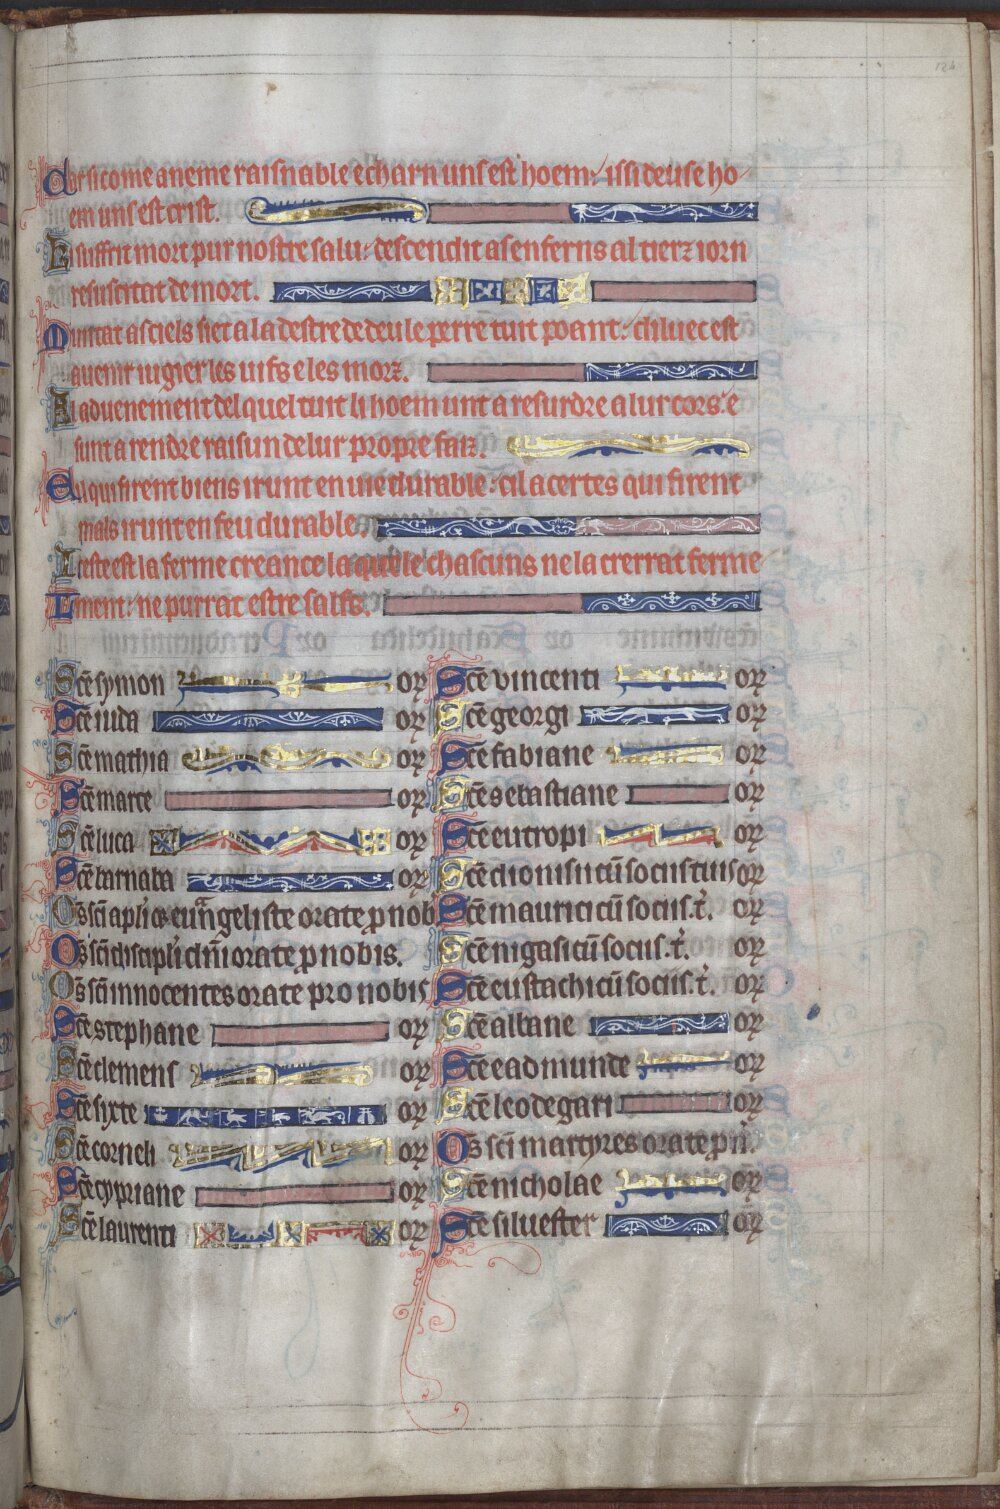 Car sicome aneme raisnable e charn uns est hoem: issi deus e ho
em uns est crist.
Ki suffrit mort pur nostre salu: descendit as enferns al tierz iorn
resuscitat de mort.
Muntat as ciels siet a la destre de deu le perre tuit poant: diluec est
auenir iugier les uifs e les morz.
Al aduenement del quel tuit li hoem unt a resurdre a lur cors: e
sunt a rendre raisun de lur propre faiz.
E qui firent biens irunt en uie durable: cil acertes qui firent
mals irunt en feu durable.
Ceste est la ferme creance laquele chascuns ne la crerrat ferme
ment: ne purrat estre salfs.
Sc̄e symon or
Sc̄e iuda or
Sc̄e mathia or
Sc̄e marce or
Sc̄e luca or
Sc̄e barnaba or
Os̄ sc̄i apl̄i & euāngeliste orate p nob
Os̄ sc̄i discipl̄i dn̄i orate p nobis.
Os̄ sc̄i innocentes orate pro nobis
Sc̄e stephane or
Sc̄e clemens or
Sc̄e syxte or
Sc̄e corneli or
Sc̄e cypriane or
Sc̄e laurenti or
Sc̄e vincenti or
Sc̄e georgi or
Sc̄e fabiane or
Sc̄e sebastiane or
Sc̄e eutropi or
Sc̄e dionisii cū sociis tuis or
Sc̄e maurici cū sociis. t̄. or
Sc̄e nigasi cū sociis. t̄. or
Sc̄e eustachi cū sociis. t̄. or
Sc̄e albane or
Sc̄e eadmunde or
Sc̄e leodegari or
Os̄ sc̄i martyres orate p n̄.
Sc̄e nicholae or
Sc̄e siluester or